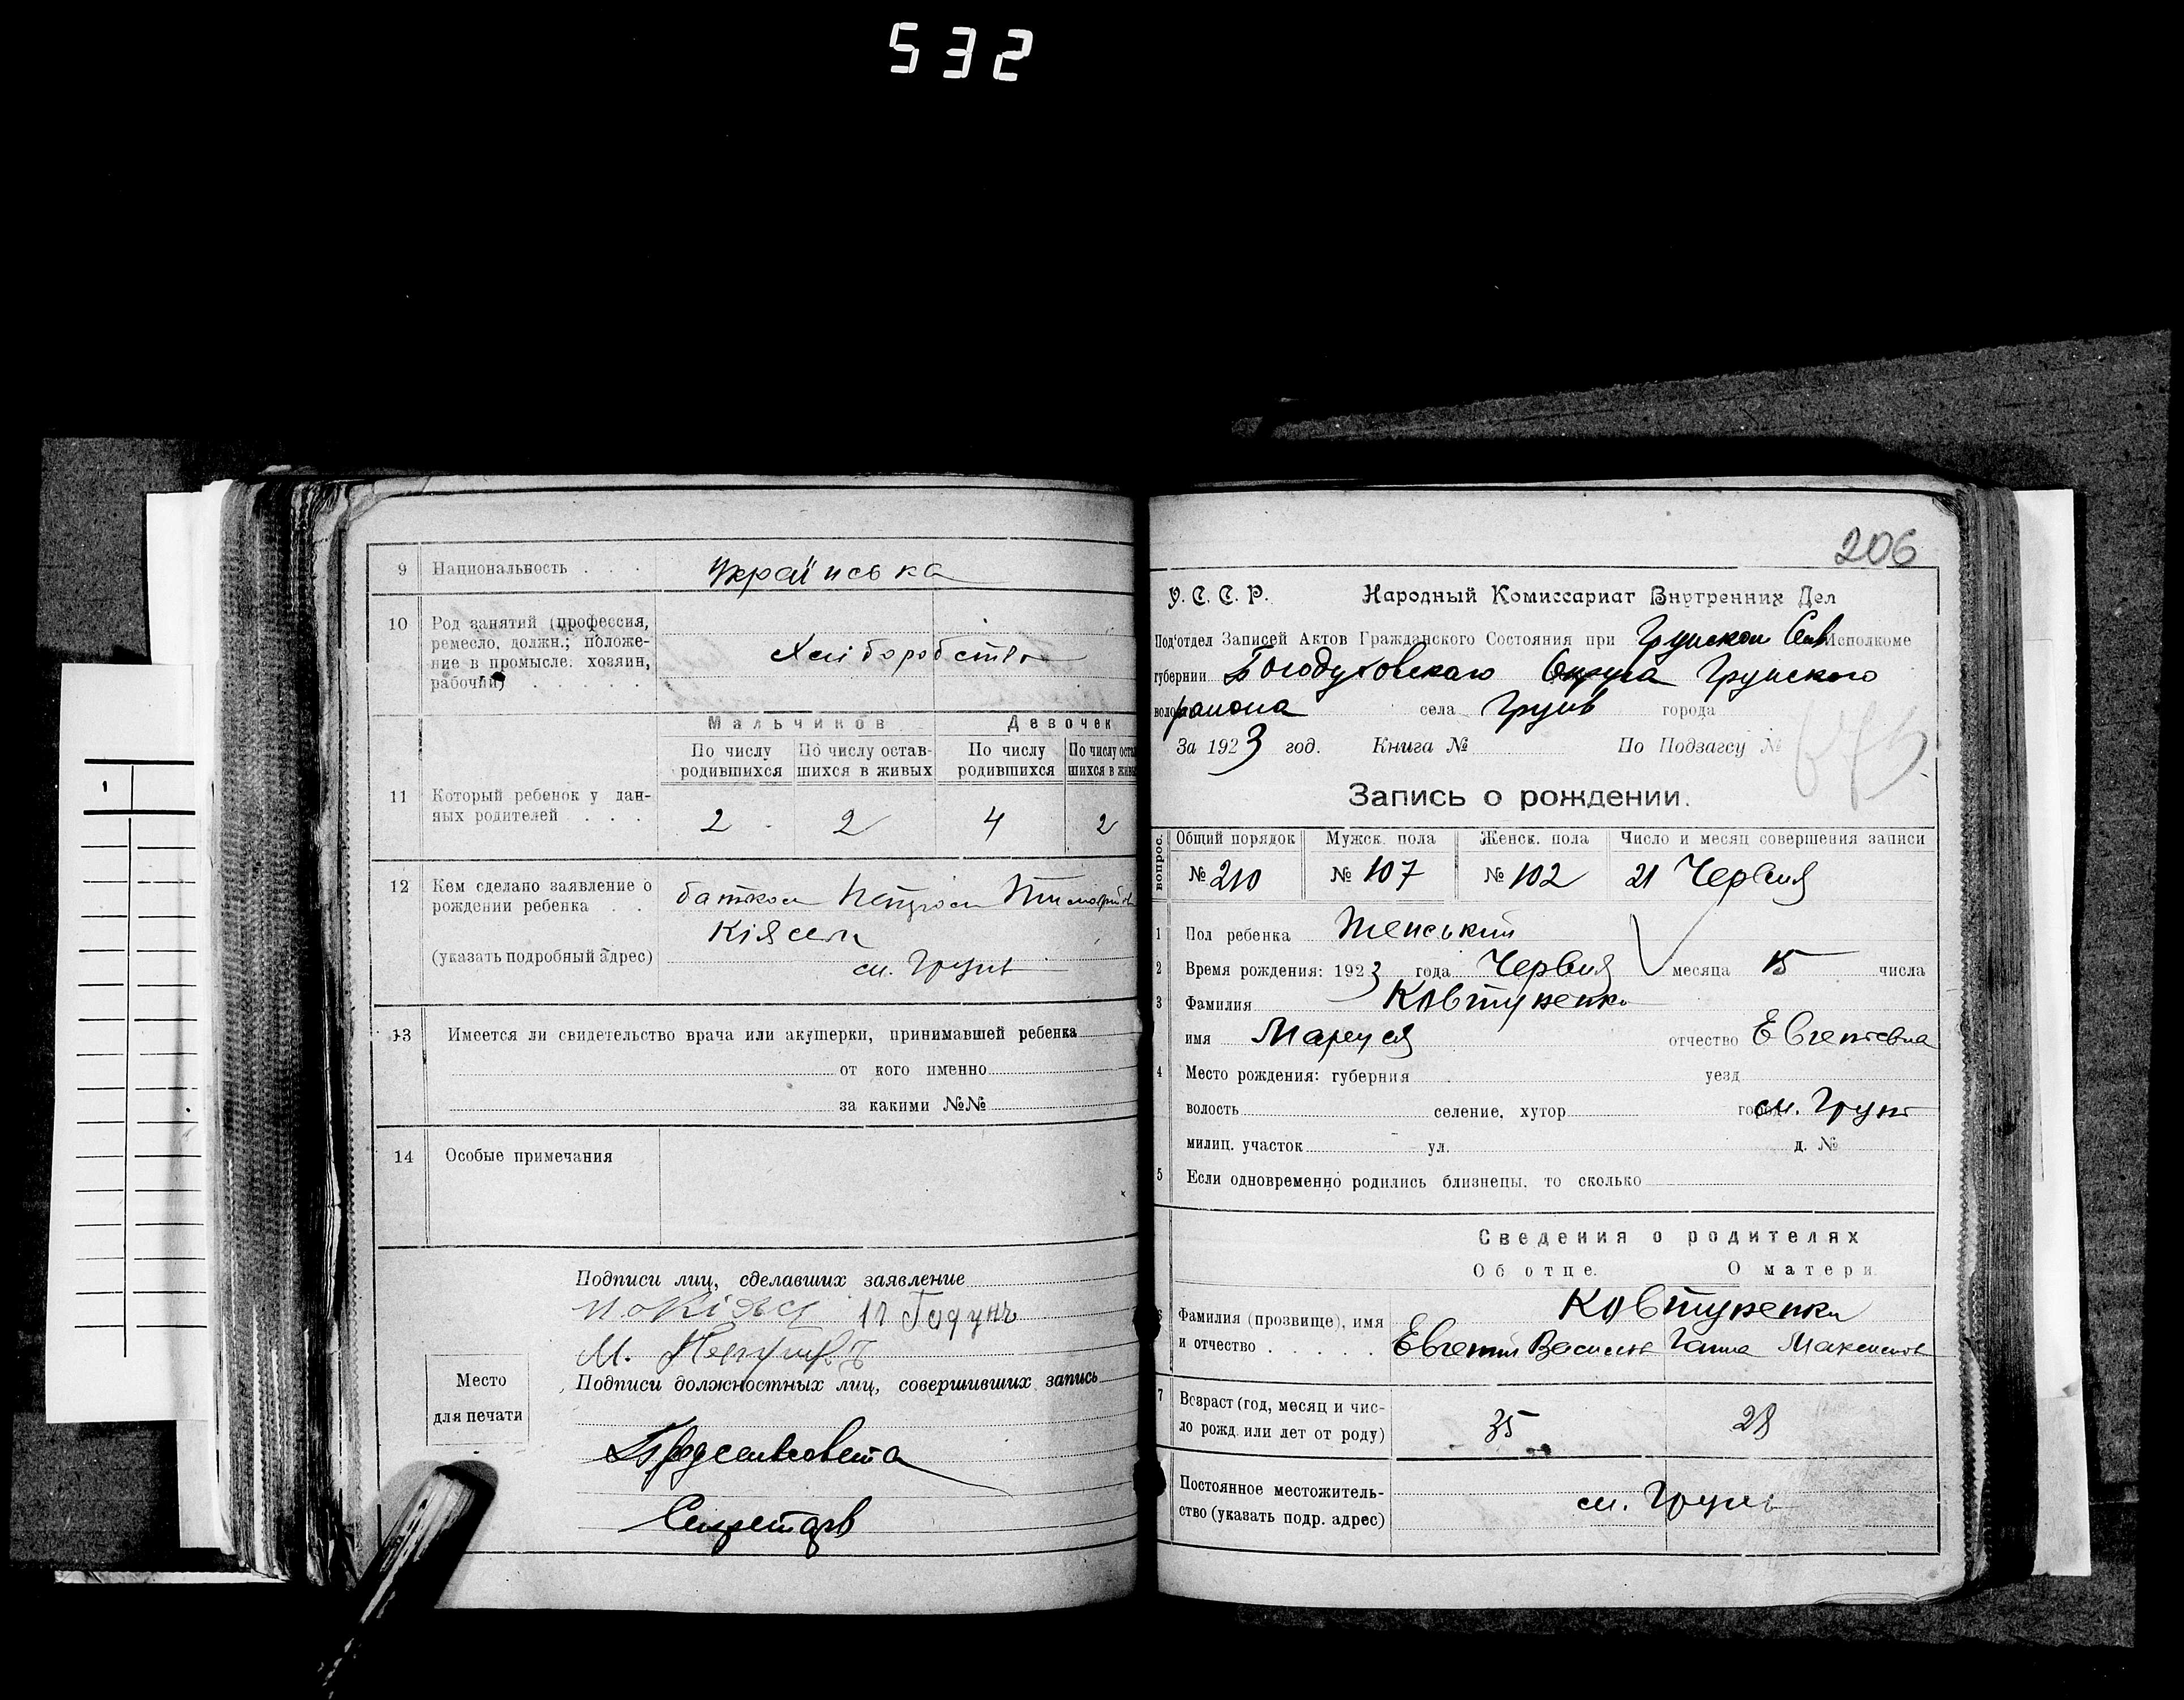 532
9 Национальность . . . Українська
10 Род занятий (профессия,
ремесло, должн.; положе-
ние в промысле: хозяин,
рабочий) . . . . . .
Хліборобство
Мальчиков Девочек
По числу родившихся По числу остав-шихся в живых По числу родившихся По числу оста шихся в живы
11 Который ребенок у дан-
ных родителей . . . 2 2 4 2
12 Кем сделано заявление о
рождении ребенка . .
(указать подробный адрес)
батьком Петром
Кіясем
см. Грунь
13 Имеется ли свидетельство врача или акушерки, принимавшей ребенка
от кого именно
за какими №№
14 Особые примечания
Подписи лиц, сделавших заявление
П. Кіяс
М.
Подписи должностных лиц, совершивших запись
Место
для печати
Предсельсовета
Секретарь
206
У. С. С. Р. Народный Комиссариат Внутренних Дел
Под'отдел Записей Актов Гражданского Состояния при Грунском Сель Исполкоме
губернии Богодуховского Округа Грунского
района села Грунь города
За 1923 год. Книга № По Подзагсу №
Запись о рождении.
вопрос. Общий порядок Мужск. пола Женск. пола Число и месяц совершения записи
№ 210 № 107 № 102 21 Червня
1 Пол ребенка Женський
2 Время рождения: 1923 года Червня месяца 15 числа
3 Фамилия Ковтуненко
имя Маруся отчество Евгеньевна
4 Место рождения: губерния уезд
волость селение, хутор см. Грунь
милиц. участок ул. д. №
5 Если одновременно родились близнецы, то сколько
Сведения о родителях
Об отце. О матери.
6 Фамилия (прозвище), имя Ковтуненки
и отчество . . . . . Евгений Васильев Ганна Максимов
7 Возраст (год, месяц и чис-
ло рожд. или лет от роду) 35 28
Постоянное местожитель-
ство (указать подр. адрес) см. Грунь